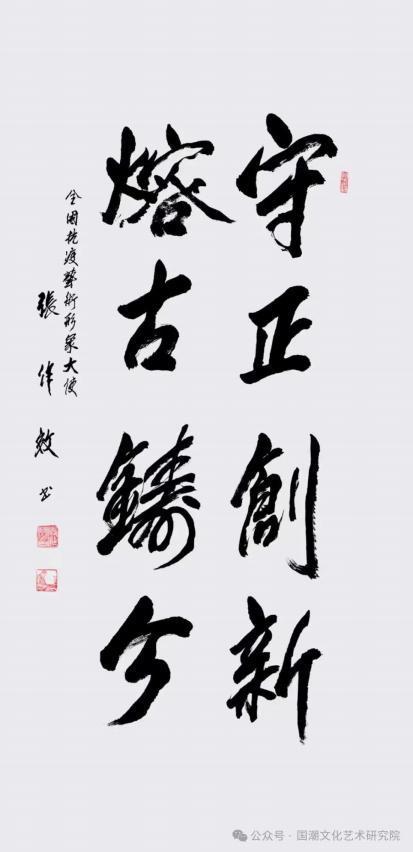 守正創新
熔古鑄今
全国抗疫藝術形象大使
張佯敖书
公众号·国潮文化艺术研究院